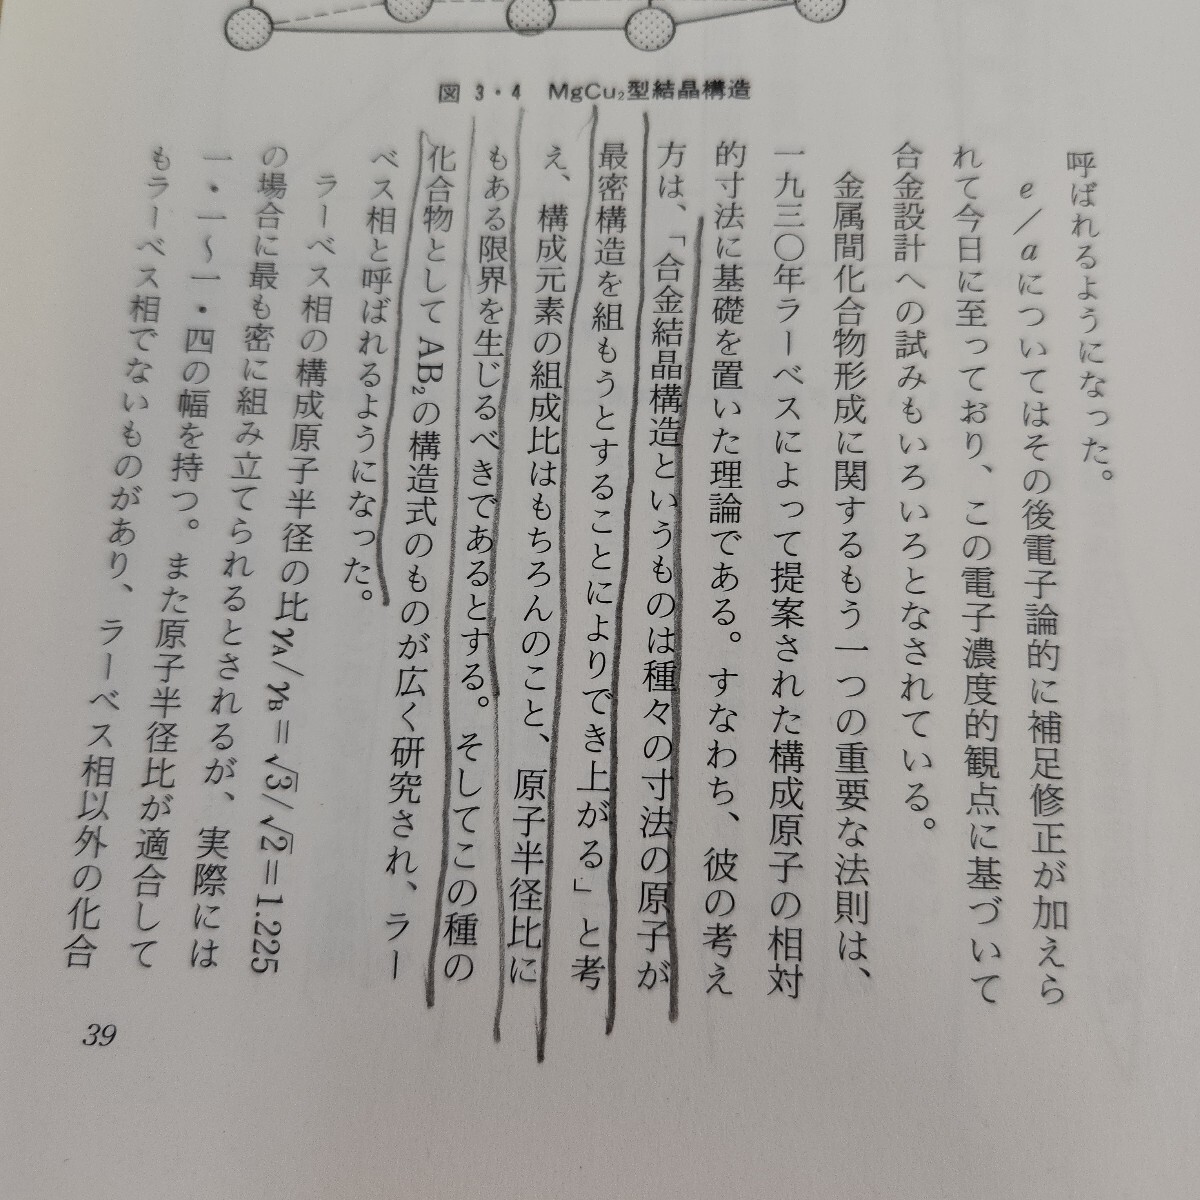 図 3・4 MgCu₂型結晶構造
呼ばれるようになった。
e/aについてはその後電子論的に補足修正が加えら
れて今日に至っており、この電子濃度的観点に基づいて
合金設計への試みもいろいろとなされている。
金属間化合物形成に関するもう一つの重要な法則は、
一九三〇年ラーベスによって提案された構成原子の相対
的寸法に基礎を置いた理論である。すなわち、彼の考え
方は、「合金結晶構造というものは種々の寸法の原子が
最密構造を組もうとすることによりでき上がる」と考
え、構成元素の組成比はもちろんのこと、原子半径比に
もある限界を生じるべきであるとする。そしてこの種の
化合物として AB₂の構造式のものが広く研究され、ラー
ベス相と呼ばれるようになった。
ラーベス相の構成原子半径の比 γA/γB=√3/√2=1.225
の場合に最も密に組み立てられるとされるが、実際には
一・一〜一・四の幅を持つ。また原子半径比が適合して
もラーベス相でないものがあり、ラーベス相以外の化合
39